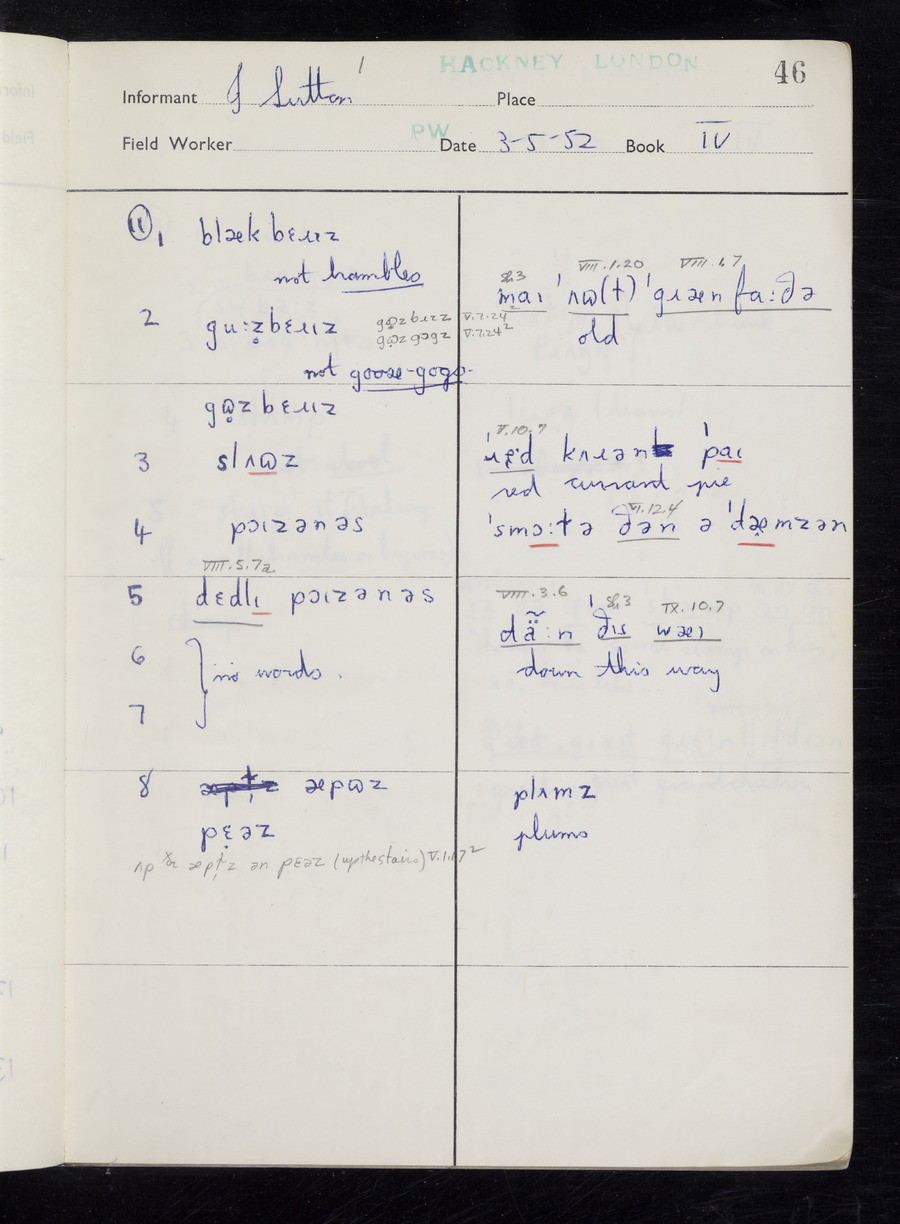 HACKNEY LONDON
46
Informant J Sutton Place
PW
Field Worker Date 3-5-52 Book IV
⑪1 blækbɛɹɪz
not brambles
2 gu:z̥bɛɹɪz
gɷ̥zbɛɹɪz V.7.24²
gɷ̥zgɔgz V.7.24²
not goose-gogs
gɷ̥zbɛɹɪz
3 slʌɷz
4 pɔɪzənəs
VIII.5.7a
5 dɛdlɪ pɔɪzənəs
6
no words.
7
8 æpɷz
pɛ̣əz
ʌp æpɫ̩z ən pɛəz (upthestairs) V.1.17²
VIII.1.20 VIII.1.7
maɪ 'ʌɷ(ɫ) 'gɹæn fɑ:ðə
old
V.10.7
'ɹɛ̣d kʌɹənt 'paɪ
red currant pie
VI.12.4
'smɔ:tə ðən ə 'dæ̣mzən
VIII.3.6 IX.10.7
dä̃:n 'ðɪs wæɪ
down this way
plʌmz
plums